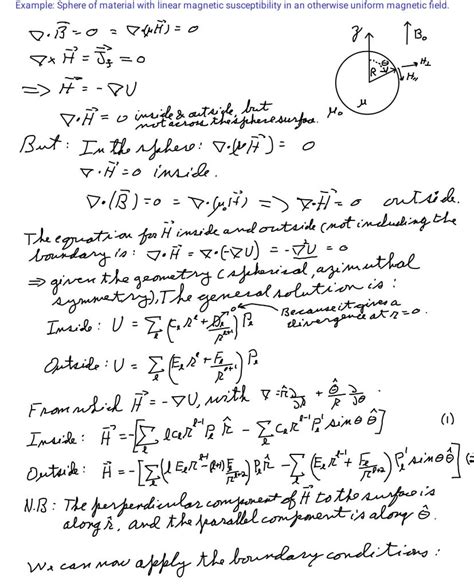 Example: Sphere of material with linear magnetic susceptibility in an otherwise uniform magnetic field.
∇·B⃗ = 0 = ∇·(μH⃗) = 0
∇×H⃗ = J⃗_f = 0
=> H⃗ = -∇U
∇·H⃗ = 0 inside & outside, but
not across the sphere surface.
z B₀
θ H⊥
R H∥
μ₀ μ
But: In the sphere: ∇·(μH⃗) = 0
∇·H⃗ = 0 inside.
∇·(B⃗) = 0 = ∇·(μ₀H⃗) => ∇·H⃗ = 0 outside.
The equation for H⃗ inside and outside (not including the
boundary is: ∇·H⃗ = ∇·(-∇U) = -∇²U = 0
=> given the geometry (spherical, azimuthal
symmetry), The general solution is:
Because it gives a
divergence at r = 0.
Inside: U = Σ_l (C_l r^l + D_l/r^{l+1}) P_l
Outside: U = Σ_l (E_l r^l + F_l/r^{l+1}) P_l
From which H⃗ = -∇U, with ∇ = r̂ ∂/∂r + θ̂/r ∂/∂θ
Inside: H⃗ = -[Σ_l l C_l r^{l-1} P_l r̂ - Σ_l C_l r^{l-1} P_l' sinθ θ̂] (1)
Outside: H⃗ = -[Σ_l (l E_l r^{l-1} - (l+1) F_l/r^{l+2}) P_l r̂ - Σ_l (E_l r^{l-1} + F_l/r^{l+2}) P_l' sinθ θ̂]
N.B: The perpendicular component of H⃗ to the surface is
along r̂, and the parallel component is along θ̂.
We can now apply the boundary conditions: